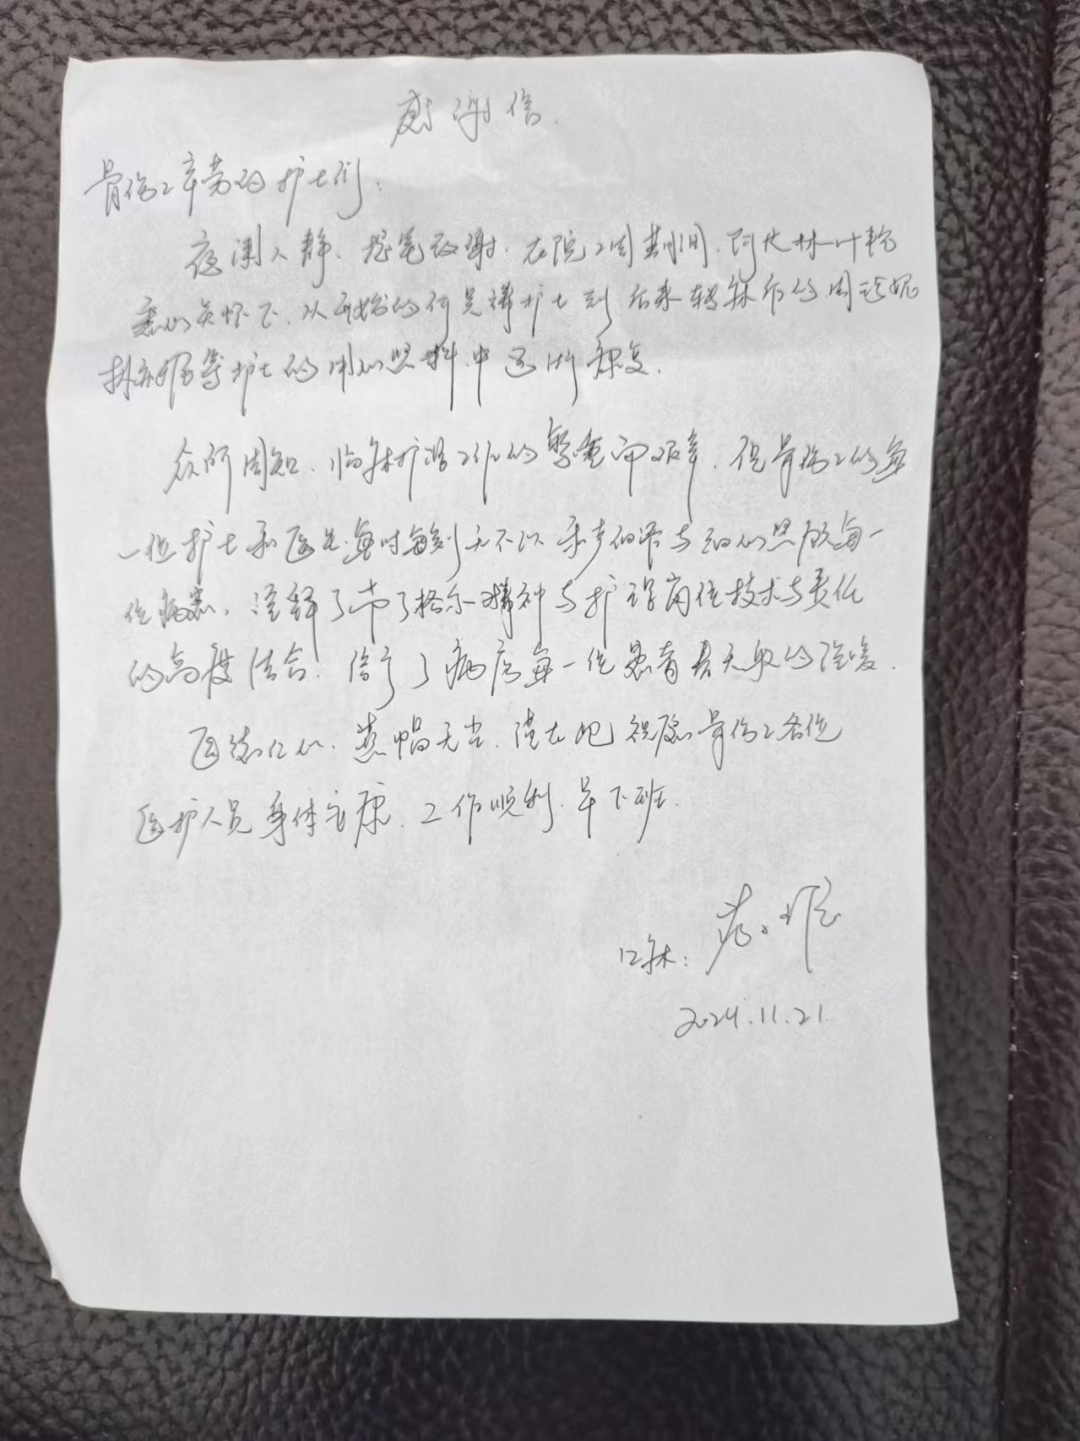 感谢信
骨伤2辛劳的护士们：
夜阑人静、提笔致谢.在院2周期间.阿大林叶艳
惠的关怀下、从开始的何
护士到后来转床后的周
等护士的用心照料中逐渐康复.
众所周知、临床护理工作的繁重而艰辛.但骨伤2的每
一位护士和医生每时每刻无不以和声细语与细心照顾每一
位病患.诠释了南丁格尔精神与护理岗位技术与责任
的高度结合.给予了病房每一位患者
的温暖.
医德仁心.
无言.谨在此祝愿骨伤2各位
医护人员身体安康.工作顺利.早下班.
12床：
2024.11.21